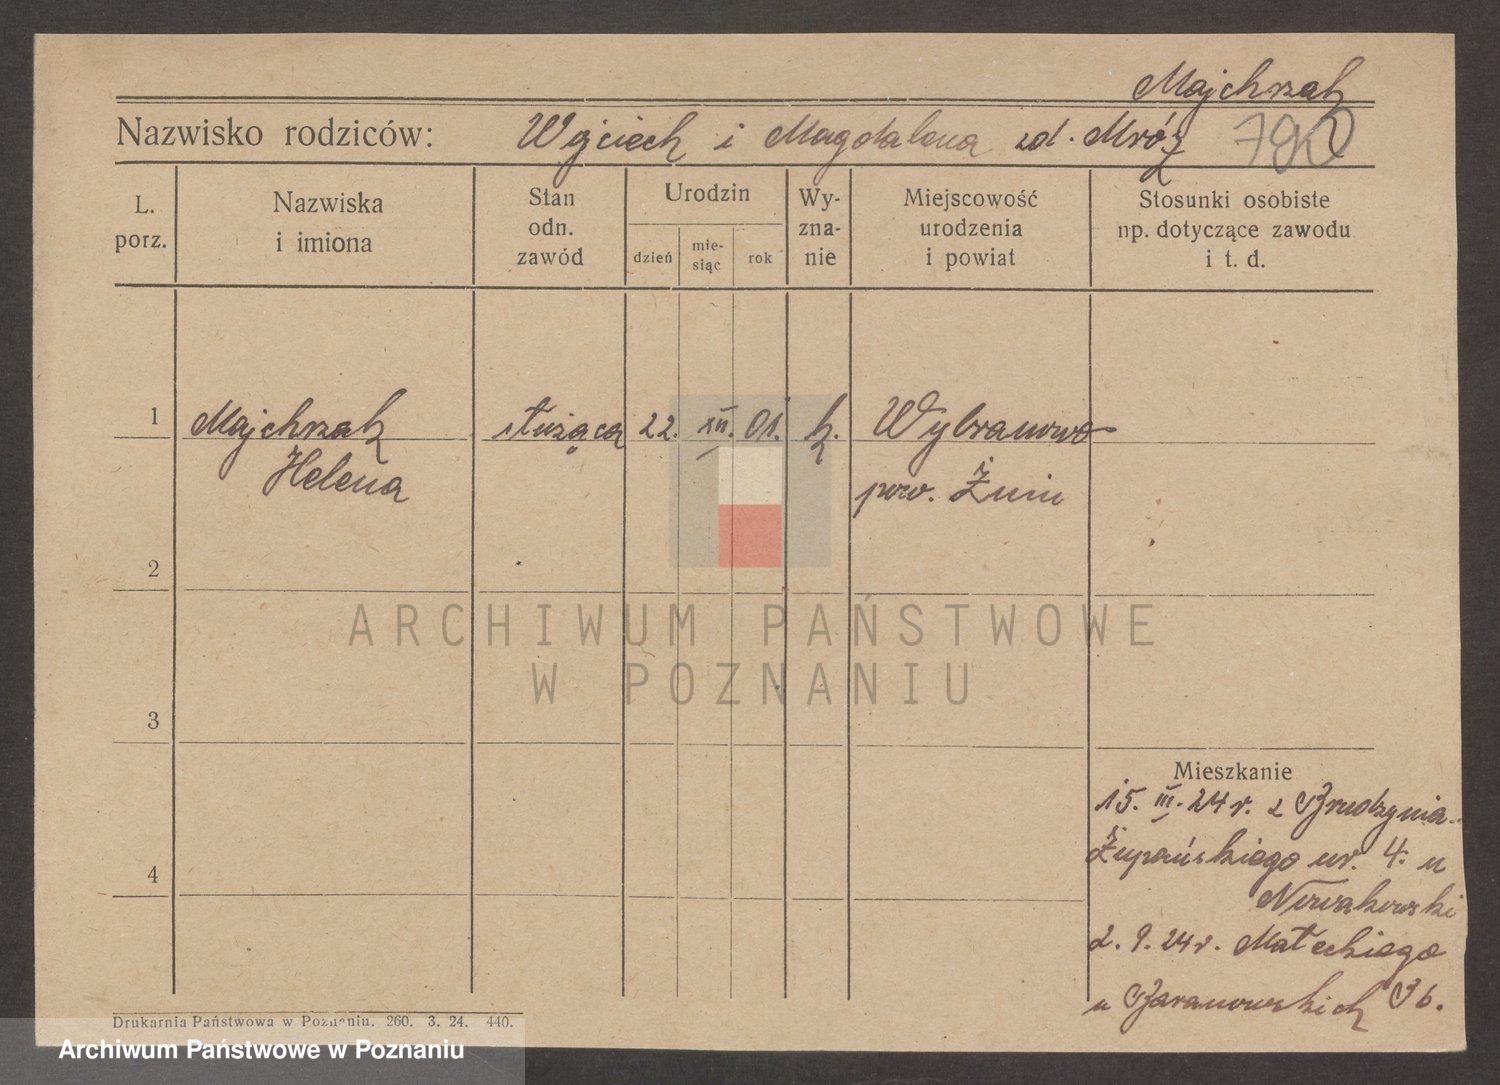 Majchrzak
Nazwisko rodziców: Wojciech i Magdalena zd. Mróz
L. porz.
Nazwiska i imiona
Stan odn. zawód
Urodzin
dzień
mie-
siąc
rok
Wy-
zna-
nie
Miejscowość
urodzenia
i powiat
Stosunki osobiste
np. dotyczące zawodu
i t. d.
1 Majchrzak służąca 22. XII. 01. k. Wybranowo
Helena pow. Żnin
2
3
4
Mieszkanie
15. III. 24 r. z Brudzynia
Żupańskiego nr. 4. u
Nowakowski
2. 9. 24 r. Małeckiego
u Baranowskich 36.
Drukarnia Państwowa w Poznaniu. 260. 3. 24. 440.
ARCHIWUM PAŃSTWOWE
W POZNANIU
Archiwum Państwowe w Poznaniu